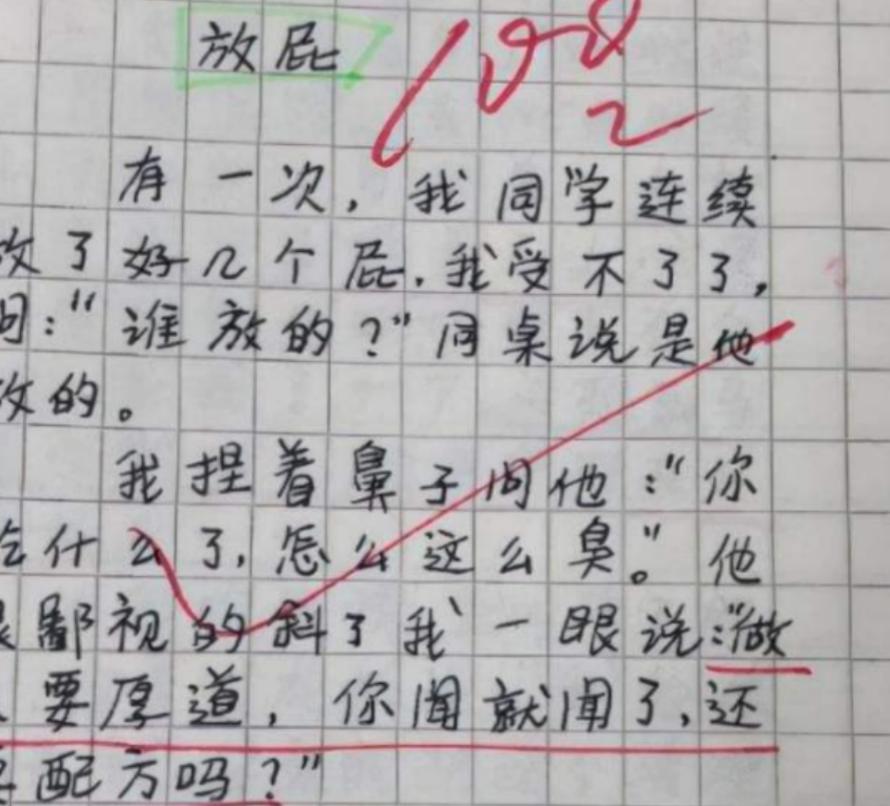 放屁
100
有一次，我同学连续
放了好几个屁，我受不了了，
问：“谁放的？”同桌说是他
放的。
我捏着鼻子问他：“你
吃什么了，怎么这么臭。”他
很鄙视的斜了我一眼说：“做
人要厚道，你闻就闻了，还
要配方吗？”